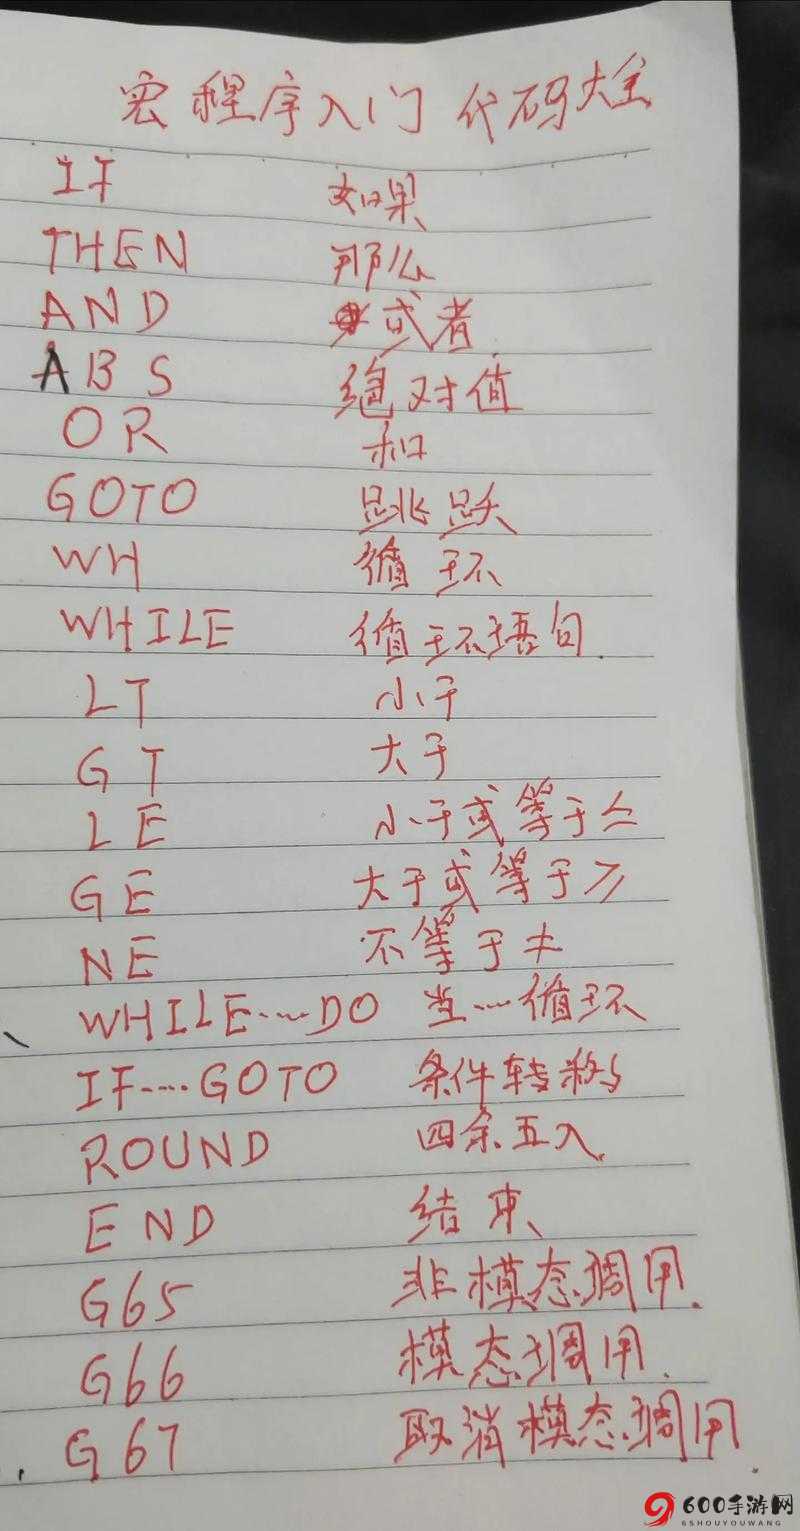 宏程序入门 代码大全
IF 如果
THEN 那么
AND 或者
ABS 绝对值
OR 和
GOTO 跳跃
WH 循环
WHILE 循环语句.
LT 小于
GT 大于
LE 小于或等于≤
GE 大于或等于≥
NE 不等于≠
WHILE……DO 当一循环
IF……GOTO 条件转移
ROUND 四余五入
END 结束
G65 非模态调用.
G66 模态调用.
G67 取消模态调用
600手游网
6SHOUYOUWANG